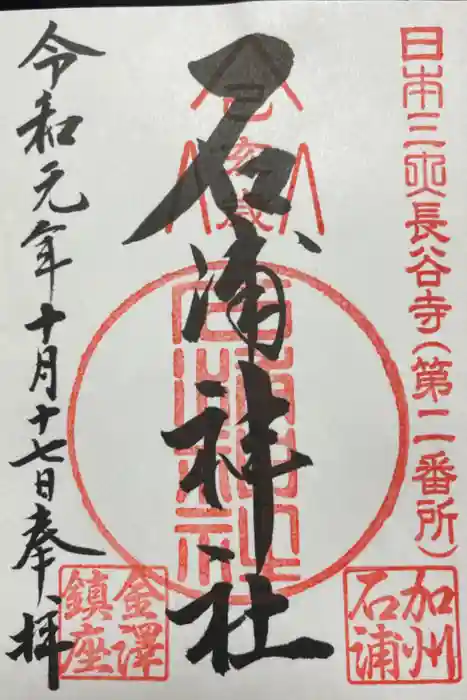 日本三大長谷寺(第二番所)
加州
石浦
己亥歳
石浦神社
金澤
鎮座
令和元年十月十七日奉拝